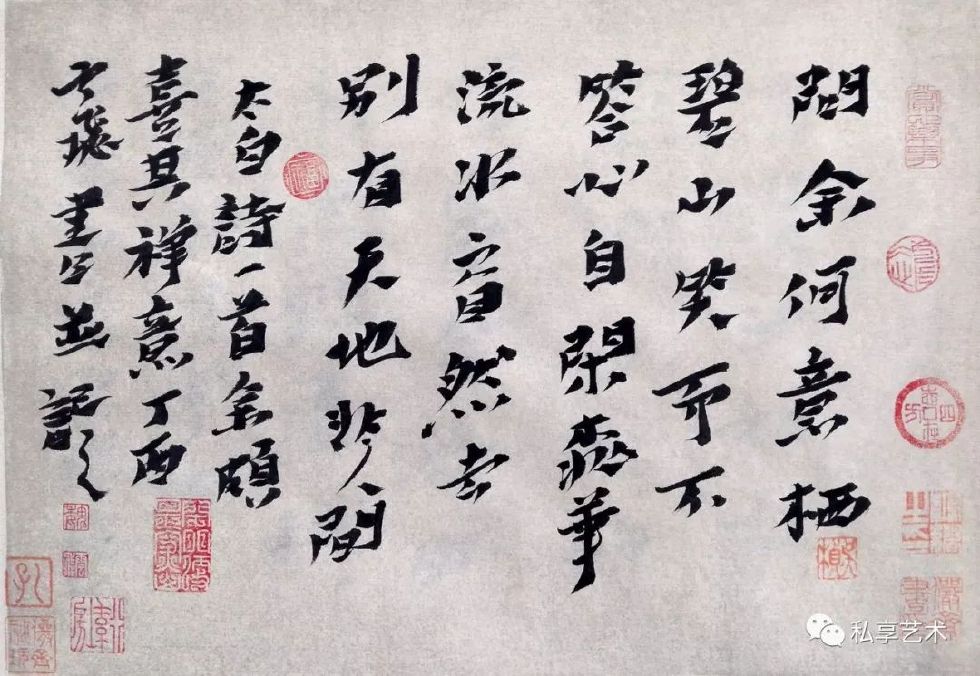 問余何意栖
碧山笑而不
答心自閑桃華
流水窅然去
別有天地非人間
太白詩一首余頗
喜其禅意丁酉
雲飛書此並記之
私享艺术